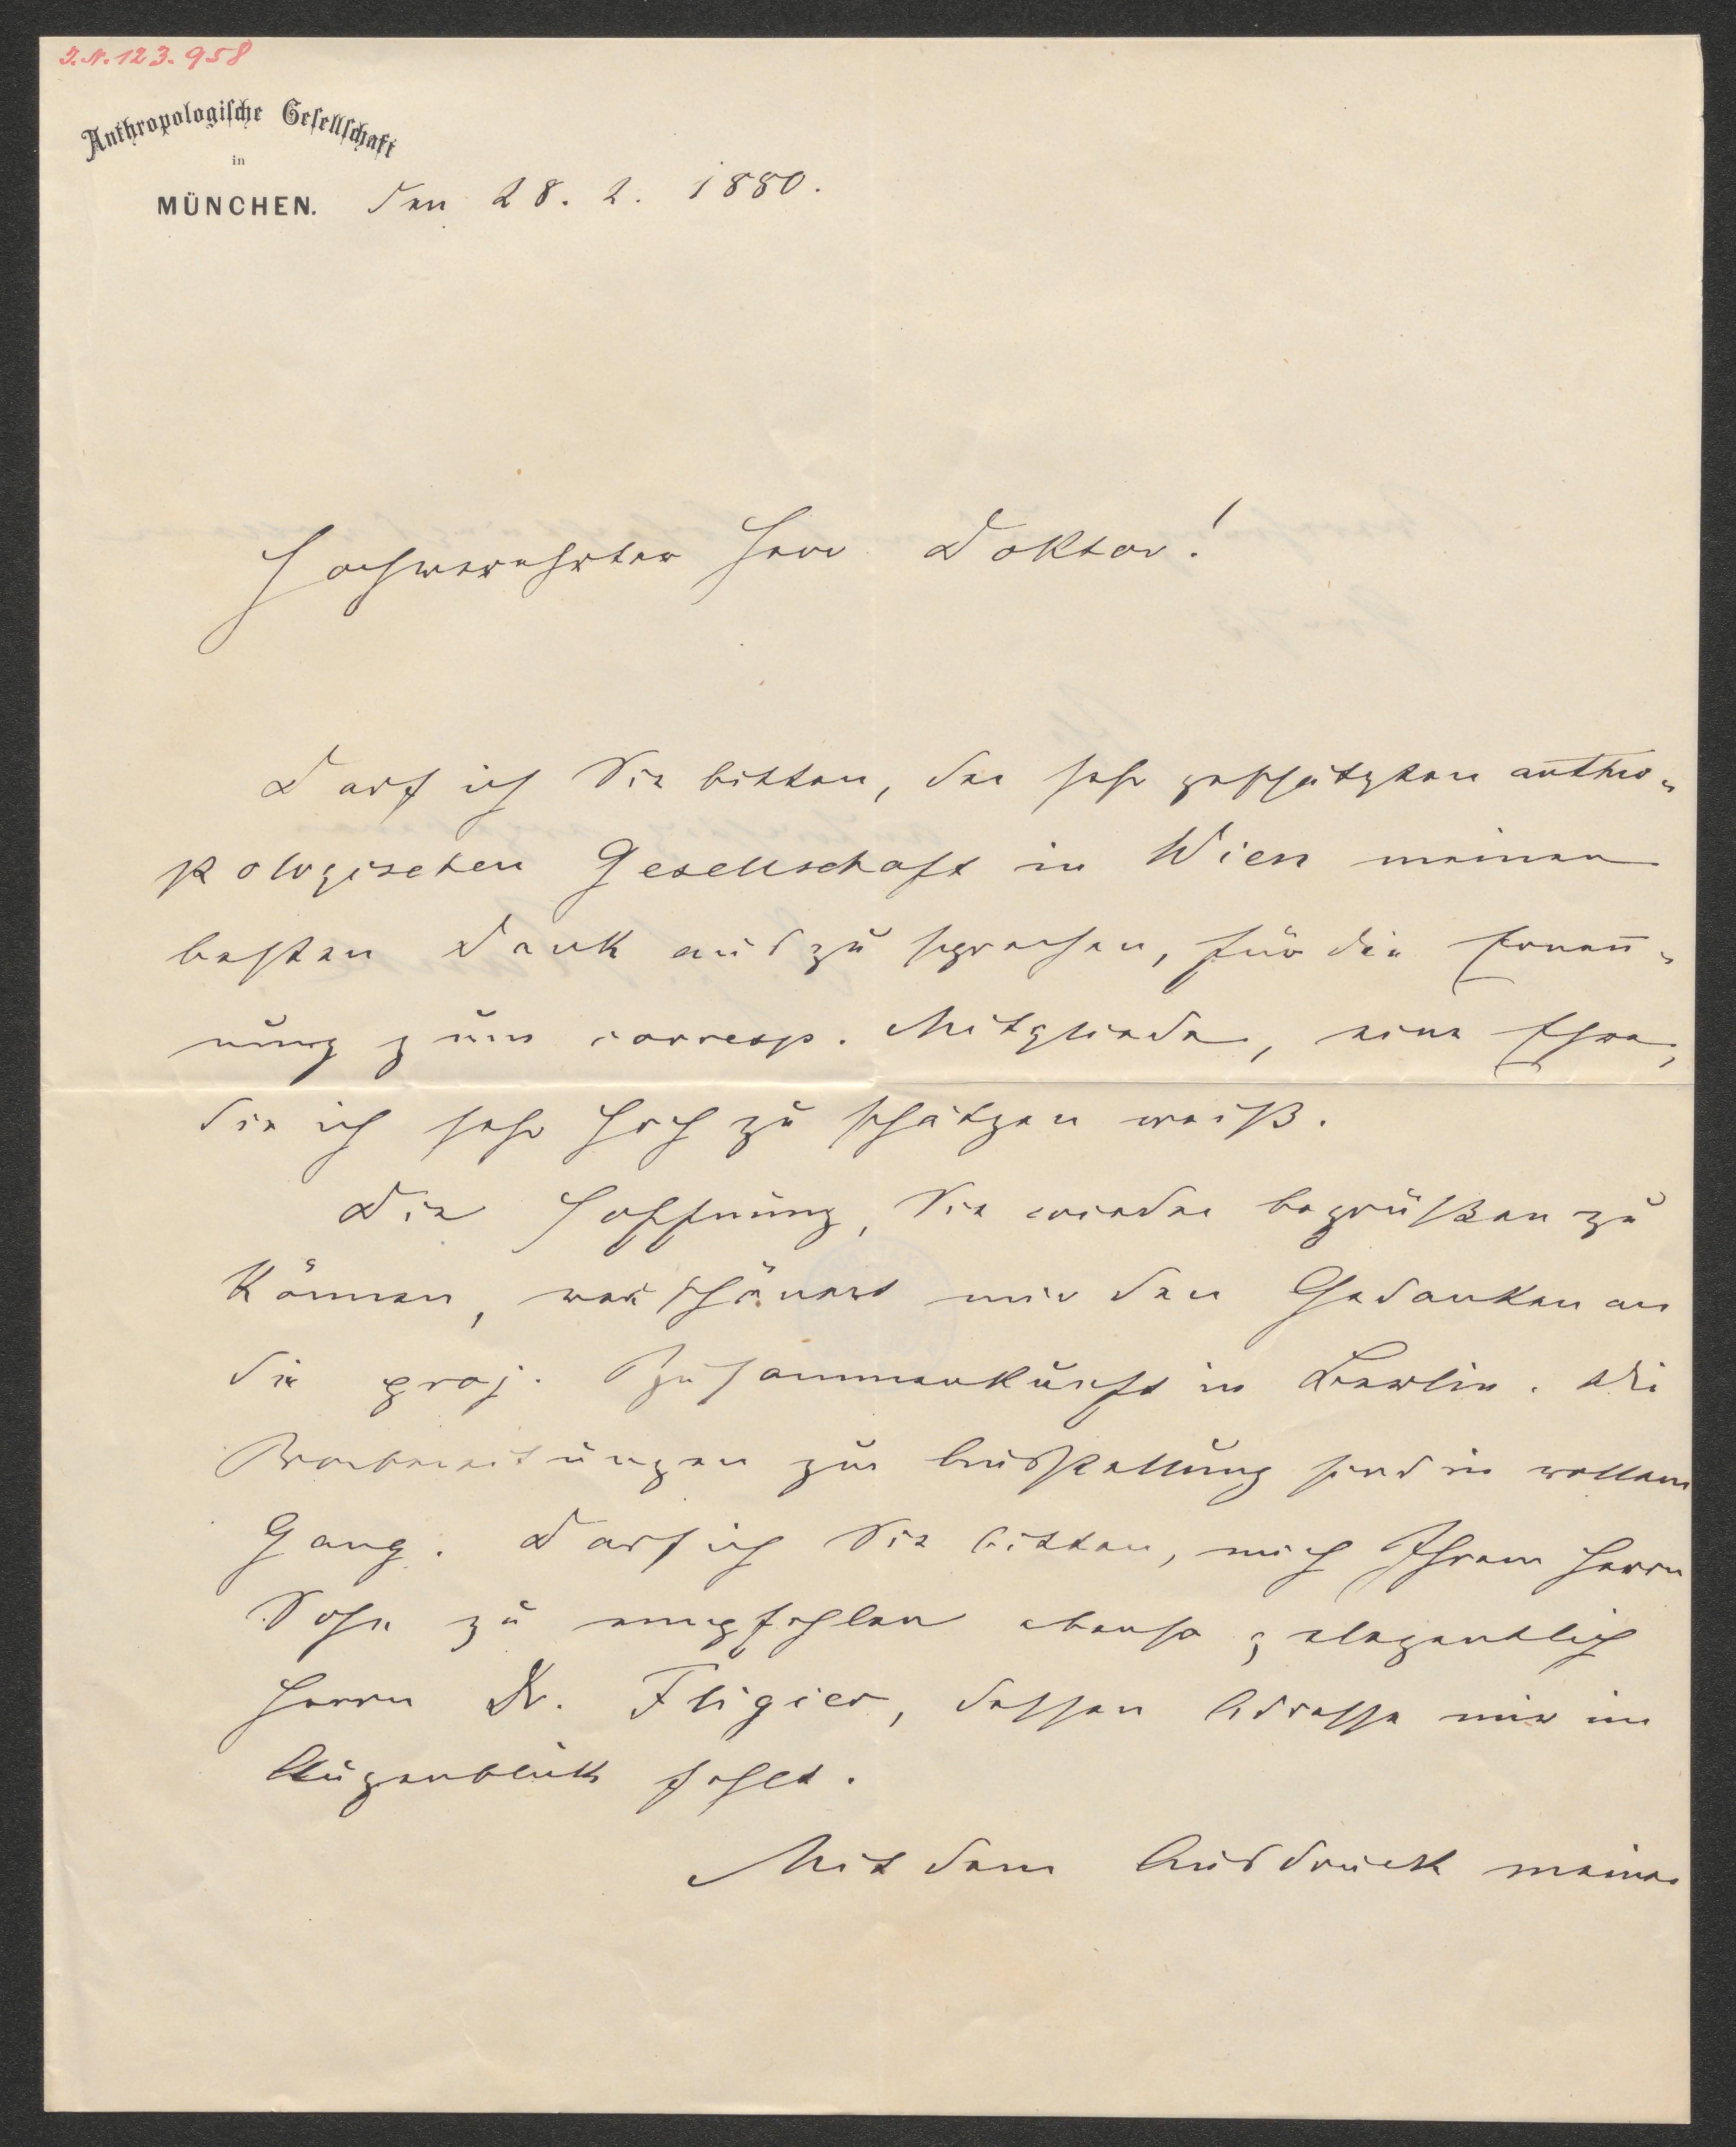 I.N. 123.958
Anthropologische Gesellschaft
in
MÜNCHEN. den 28. 2. 1880.
Hochverehrter Herr Doktor!
Darf ich Sie bitten, der sehr geschätzten anthro-
pologischen Gesellschaft in Wien meinen
besten Dank auszusprechen, für die Ernen̅-
nung zum corresp. Mitgliede, eine Ehre,
die ich sehr hoch zu schätzen weiß.
Die Hoffnung, Sie wieder begrüßen zu
können, verschönert mir den Gedanken an
die proj. Zusammenkunft in Berlin. Die
Vorbereitungen zur Ausstellung sind in vollem
Gang. Darf ich Sie bitten, mich Ihrem Herrn
Sohn zu empfehlen ebenso gelegentlich
Herrn Dr. Fligier, dessen Adresse mir im
Augenblick fehlt.
Mit dem Ausdruck meiner